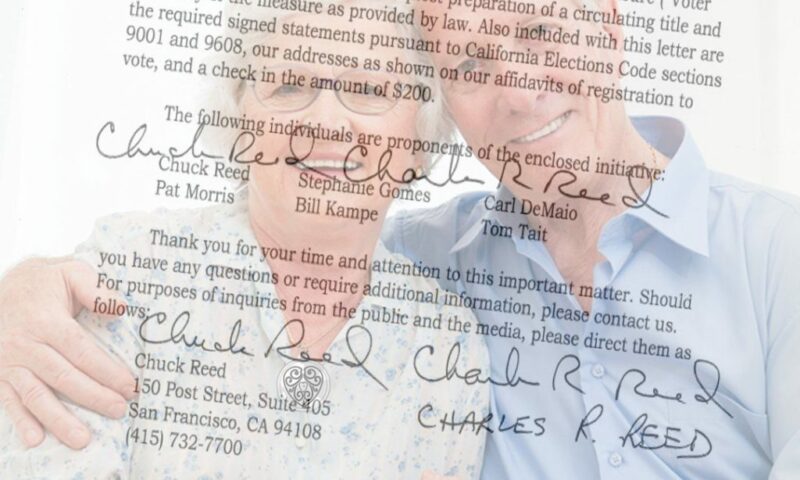 preparation of a circulating title and
the measure as provided by law. Also included with this letter are
the required signed statements pursuant to California Elections Code sections
9001 and 9608, our addresses as shown on our affidavits of registration to
vote, and a check in the amount of $200.
The following individuals are proponents of the enclosed initiative:
Chuck Reed Charles R Reed
Chuck Reed Stephanie Gomes Carl DeMaio
Pat Morris Bill Kampe Tom Tait
Thank you for your time and attention to this important matter. Should
you have any questions or require additional information, please contact us.
For purposes of inquiries from the public and the media, please direct them as
follows:
Chuck Reed Charles R Reed
Chuck Reed
150 Post Street, Suite 405
San Francisco, CA 94108
(415) 732-7700
CHARLES R. REED